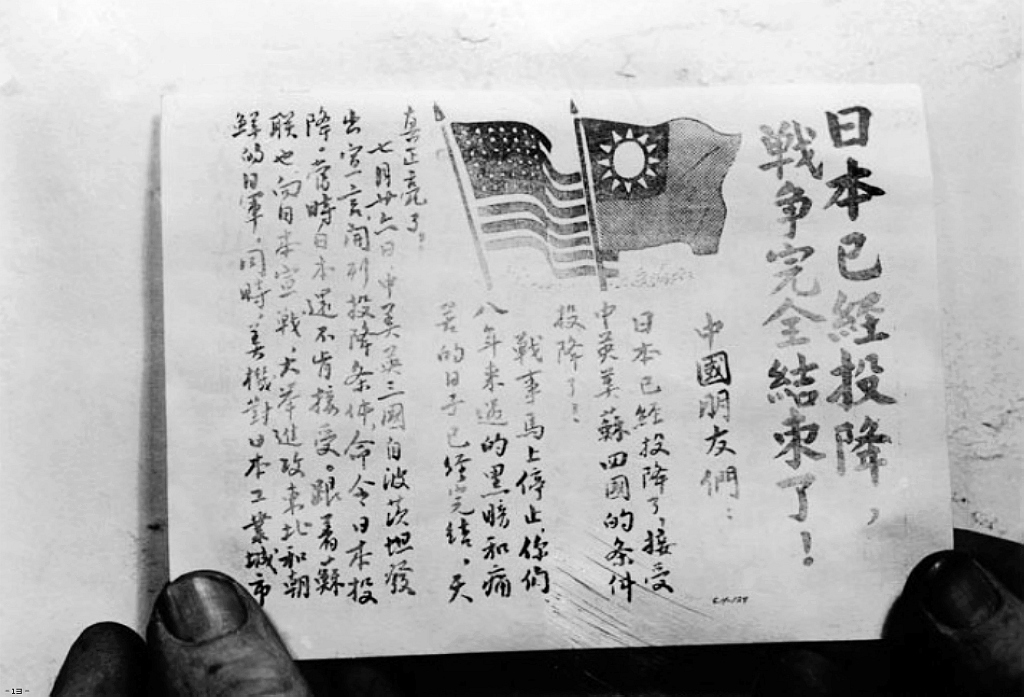 日本已経投降，
戦争完全結束了！
中國朋友們：
日本已経投降了，接受
中英美蘇四國的条件
投降了！
戰事馬上停止，你们
八年来過的黑暗和痛
苦的日子已經完結，天
真正亮了！
七月廿六日中美英三國自波茨坦發
出宣言，開列投降条件，命令日本投
降。當時日本還不肯接受。跟着蘇
联也向日本宣戰，大举進攻東北和朝
鮮的日軍，同時，美機對日本工業城市
C.H.-139
-13-